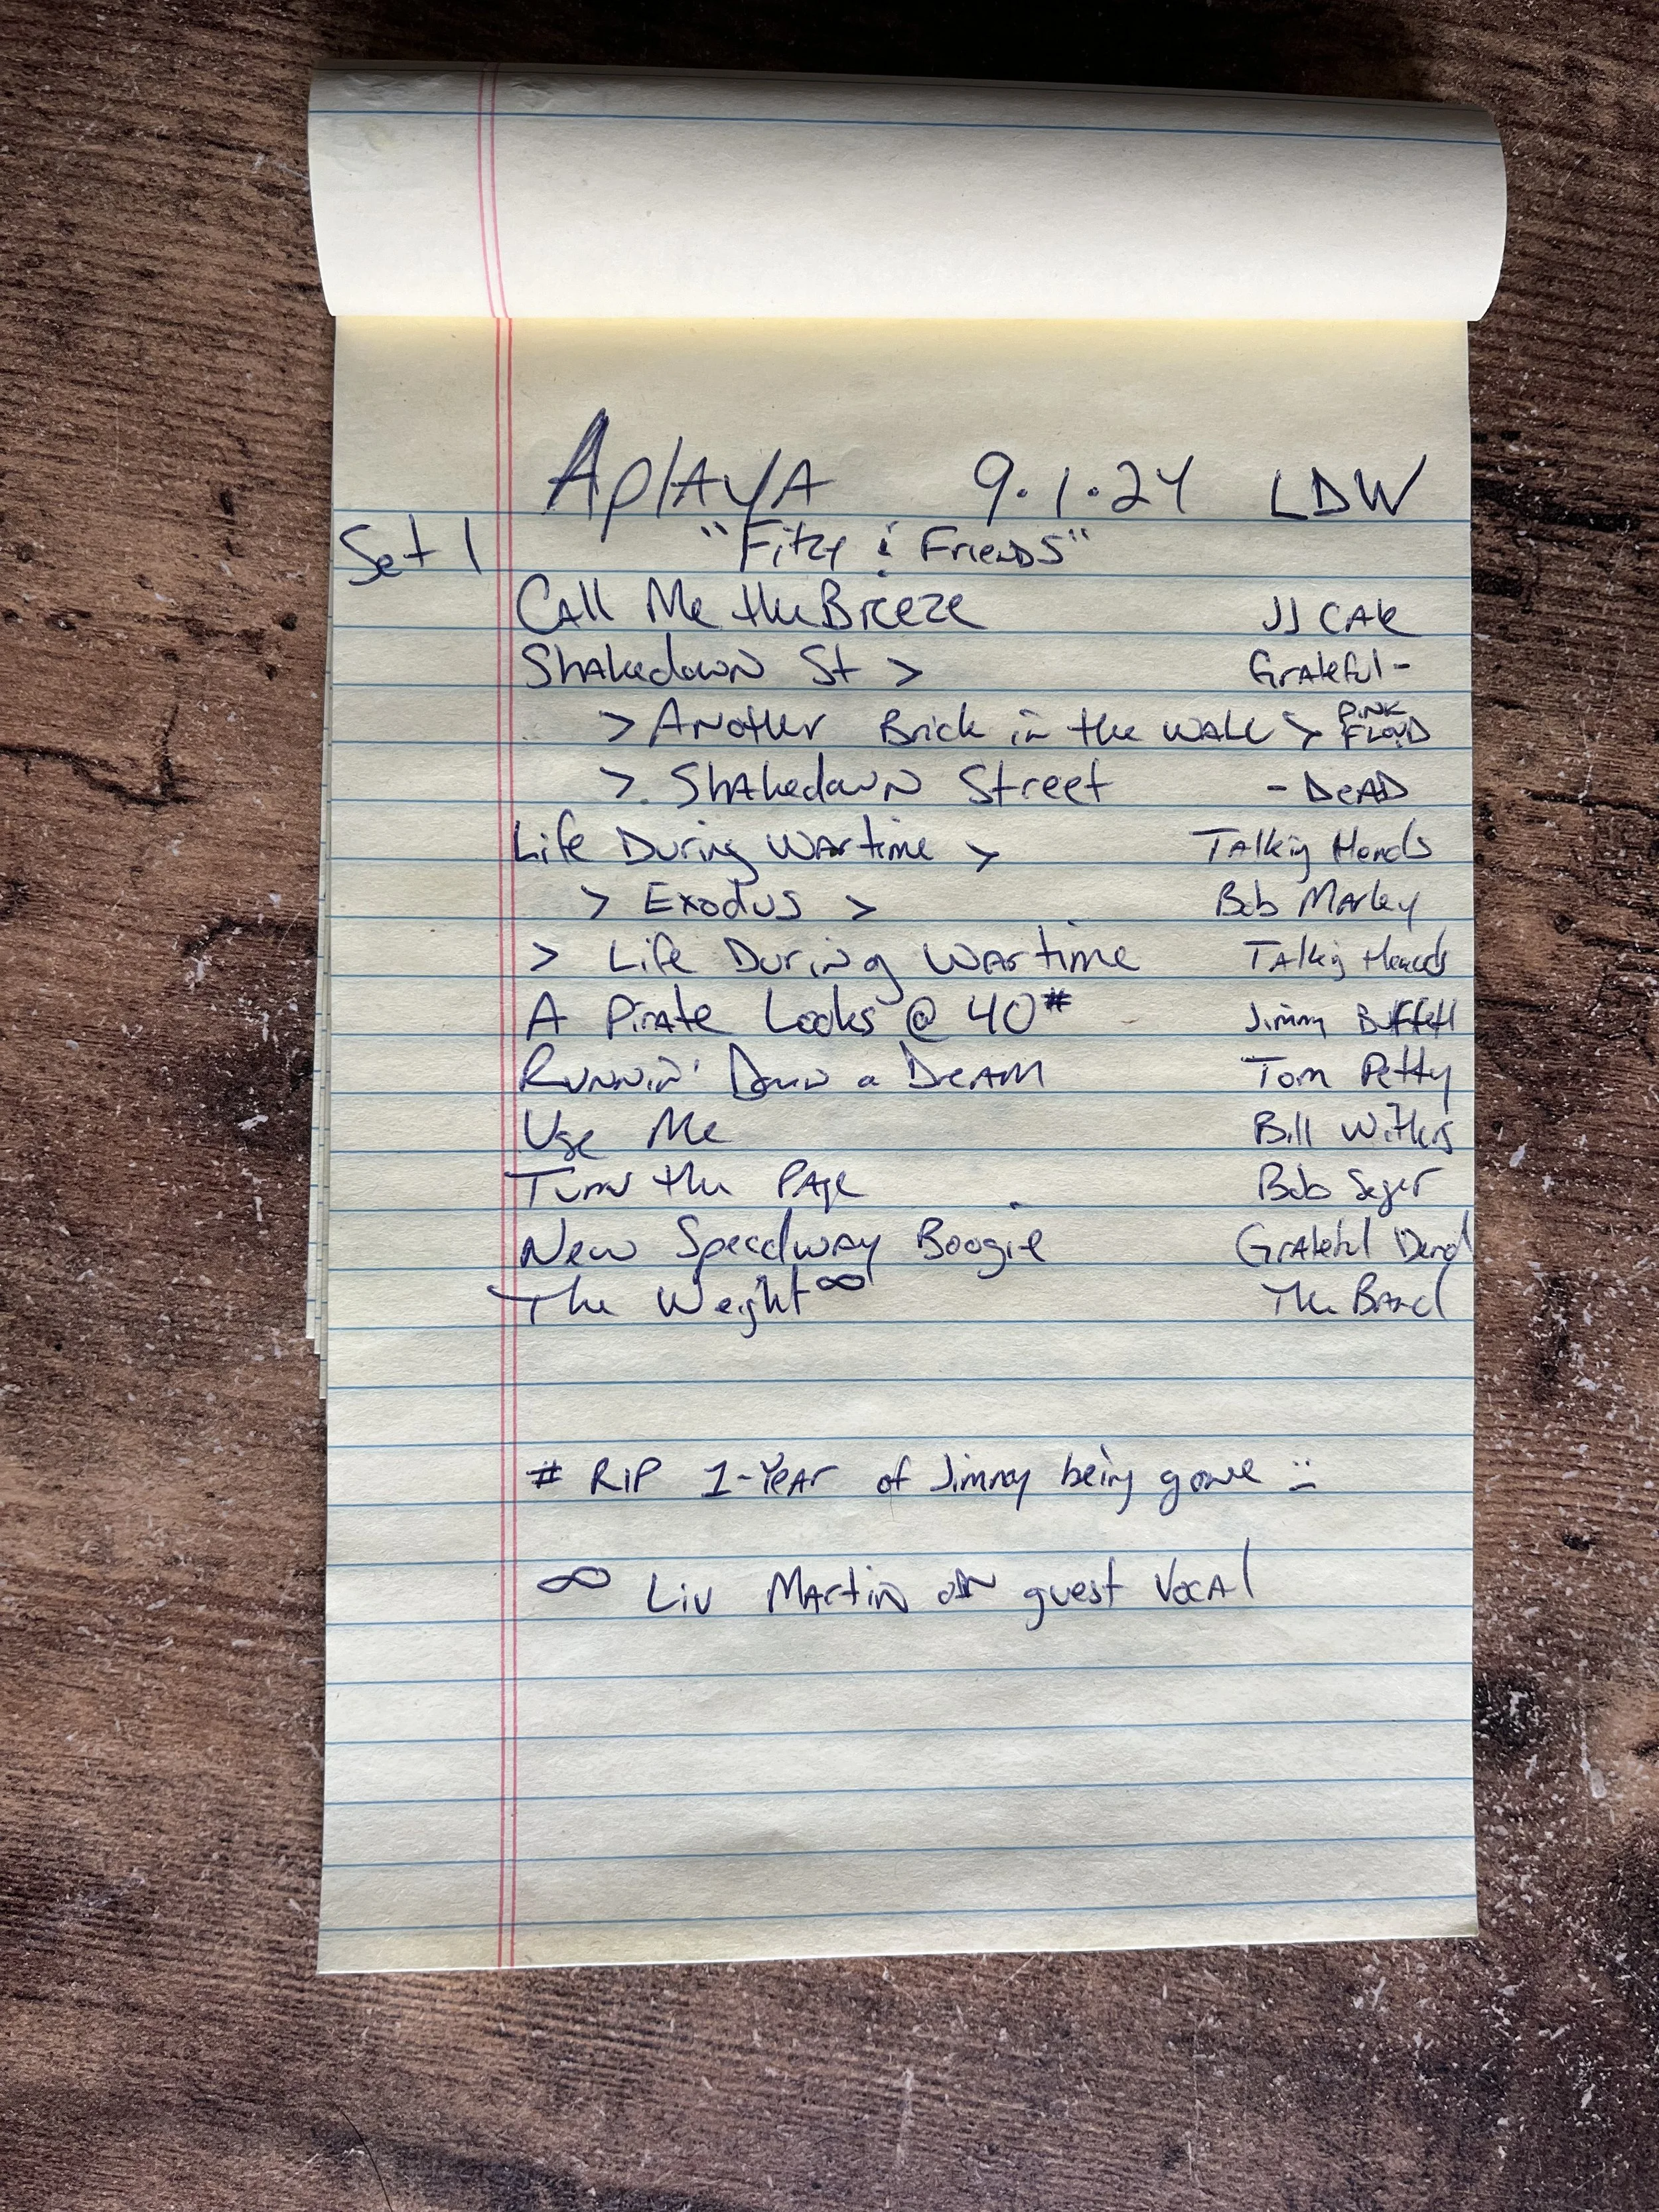 Aplaya 9.1.24 LDW
Set 1 "Fitzy & Friends"
Call Me the Breeze JJ Cale
Shakedown St > Grateful -
> Another Brick in the Wall > Pink Floyd
> Shakedown Street - Dead
Life During Wartime > Talking Heads
> Exodus > Bob Marley
> Life During Wartime Talking Heads
A Pirate Looks @ 40 # Jimmy Buffett
Runnin' Down a Dream Tom Petty
Use Me Bill Withers
Turn the Page Bob Seger
New Speedway Boogie Grateful Dead
The Weight ∞ The Band
# RIP 1-Year of Jimmy being gone
∞ Liv Martin on guest vocal